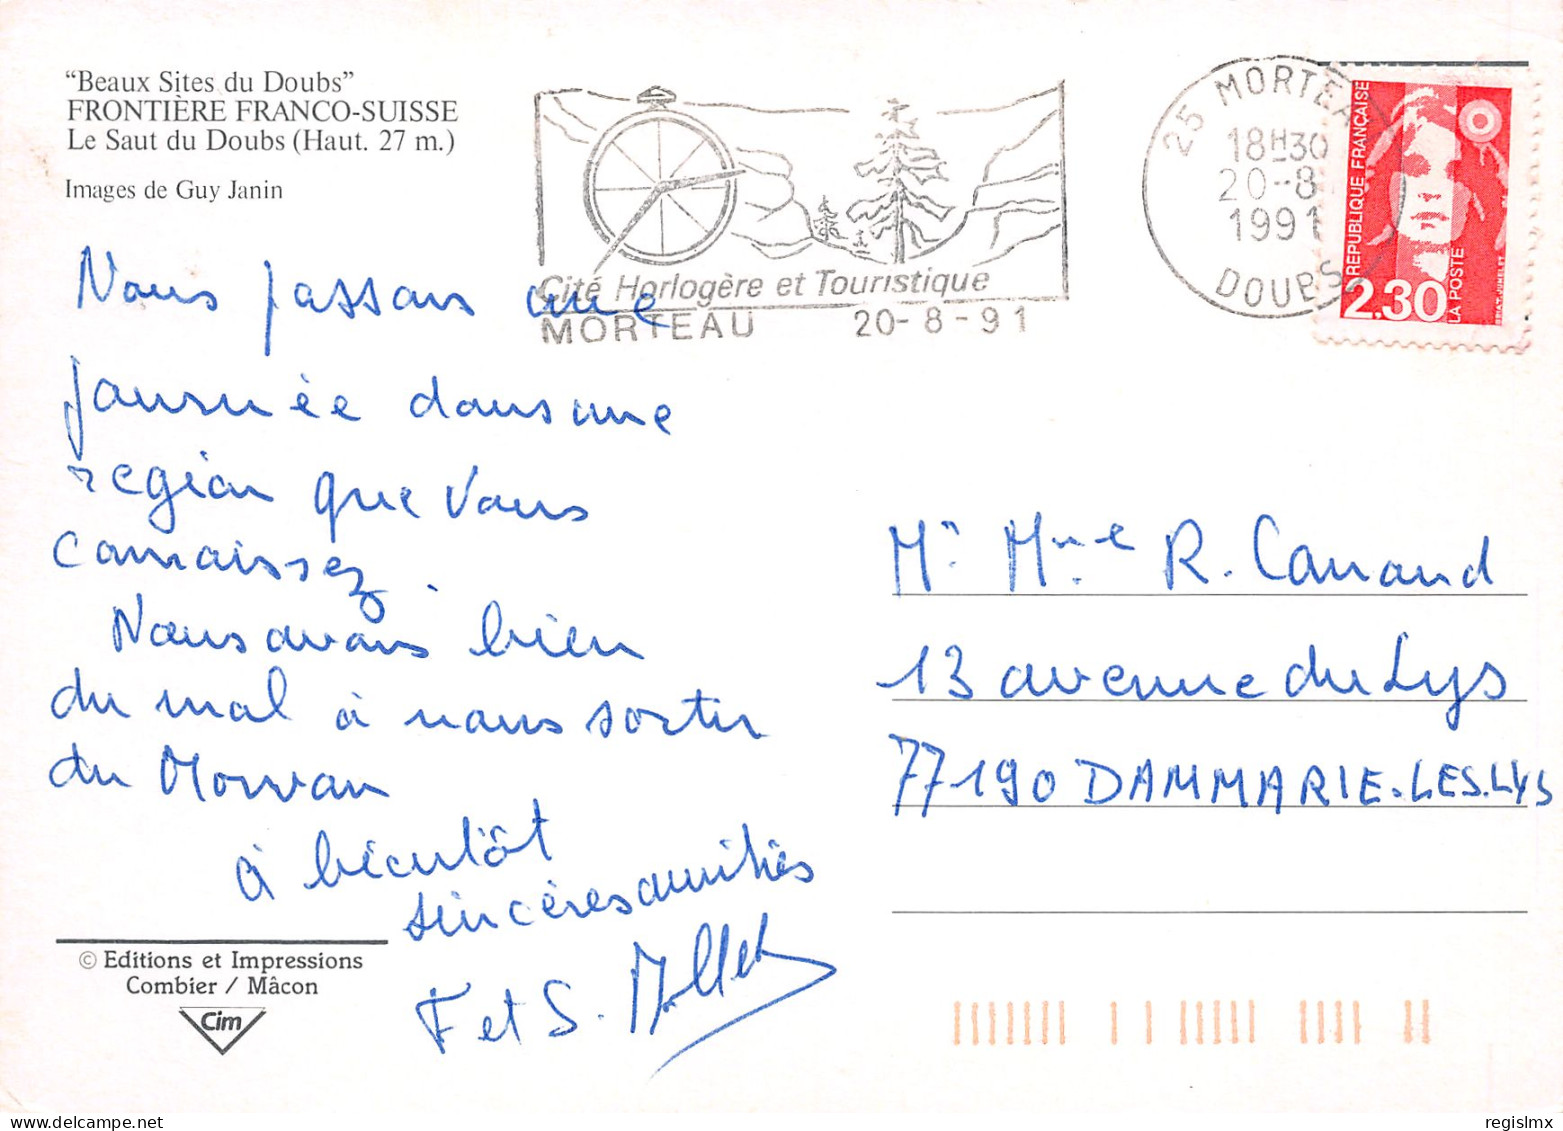 "Beaux Sites du Doubs"
FRONTIÈRE FRANCO-SUISSE
Le Saut du Doubs (Haut. 27 m.)
Images de Guy Janin
Cité Horlogère et Touristique
MORTEAU 20-8-91
25 MORTEAU
18H30
20--8
1991
DOUBS
REPUBLIQUE FRANÇAISE
2.30
LA POSTE
Nous passons une
journée dans une
region que vous
connaissez.
Nous avons bien
du mal à nous sortir
du Morvan
à bientôt
sincères amitiés
F et S. Mollet
Mr Mme R. Canaud
13 avenue du Lys
77190 DAMMARIE.LES.LYS
© Editions et Impressions
Combier / Mâcon
Cim
regislmx